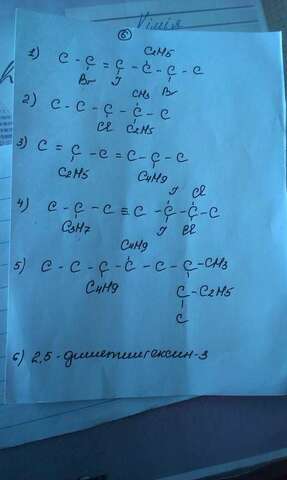 Хімія
6
C2H5
1) C - C = C - C - C - C
Br J Br
CH3
2) C - C - C - C - C
Cl C2H5
3) C = C - C = C - C - C
C2H5 C4H9
J Cl
4) C - C - C ≡ C - C - C - C
C3H7 J Cl
C4H9
5) C - C - C - C - C - C - CH3
C4H9 C - C2H5
C
6) 2,5 - диметилгексин-3